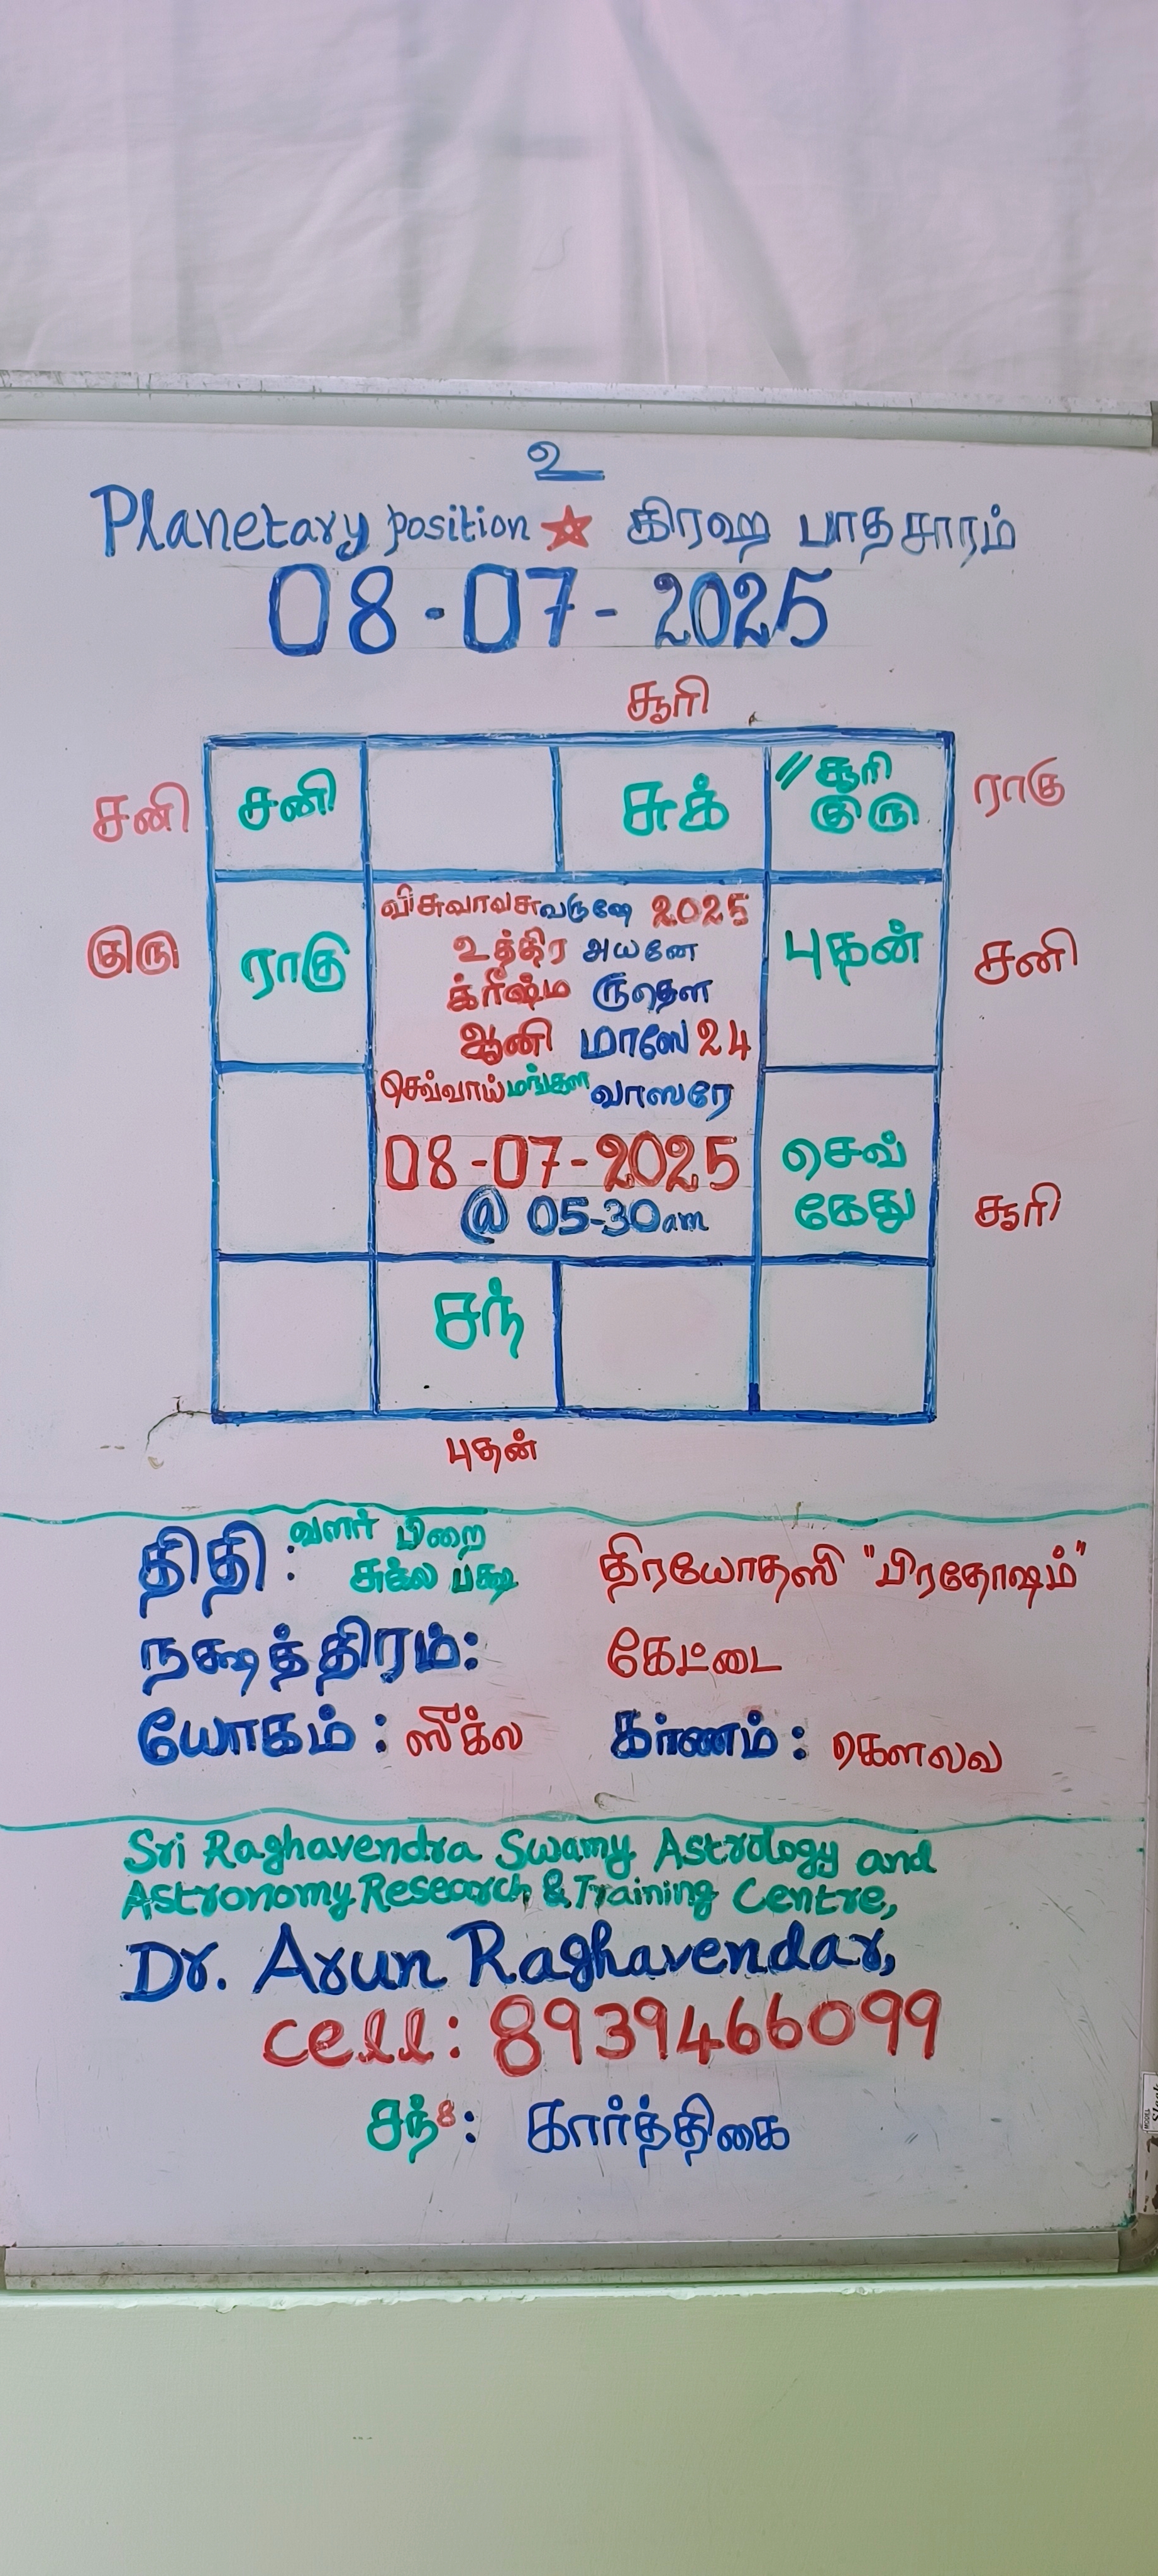 உ
Planetary position கிரஹ பாதசாரம்
08-07-2025
சூரி
சனி சனி சுக் // சூரி குரு ராகு
விசுவாவசுவருஷே 2025
உத்திர அயனே
குரு ராகு க்ரீஷ்ம ருதௌ புதன் சனி
ஆனி மாஸே 24
செவ்வாய் மங்கள வாஸரே
08-07-2025
@ 05-30am
செவ்
கேது சூரி
சந்
புதன்
திதி: வளர் பிறை சுக்ல பக்ஷ திரயோதஸி "பிரதோஷம்"
நக்ஷத்திரம்: கேட்டை
யோகம்: ஸீக்ல கர்ணம்: கௌலவ
Sri Raghavendra Swamy Astrology and
Astronomy Research & Training Centre,
Dr. Arun Raghavendar,
cell: 8939466099
சந்8: கார்த்திகை